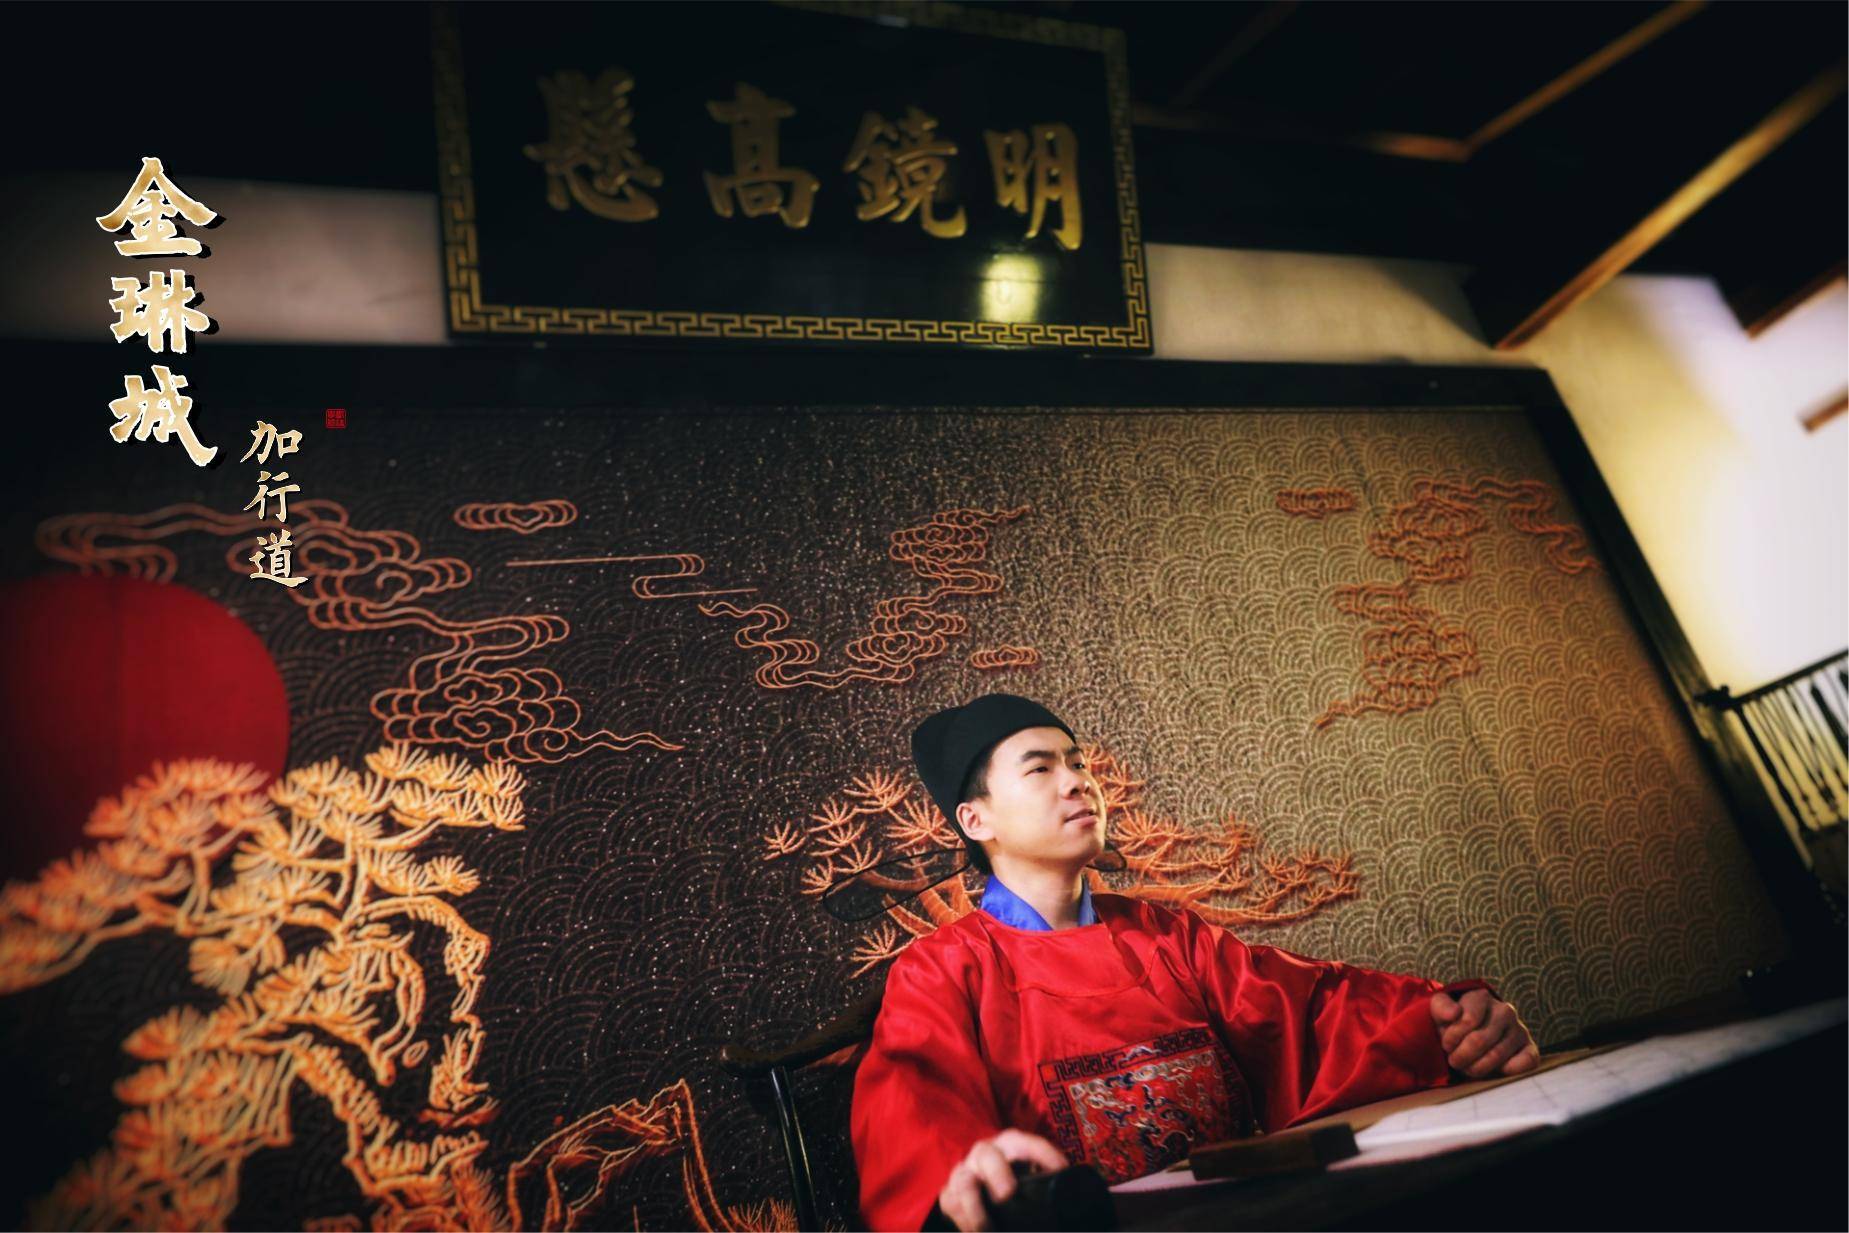 明鏡高懸
金琳城
加行道